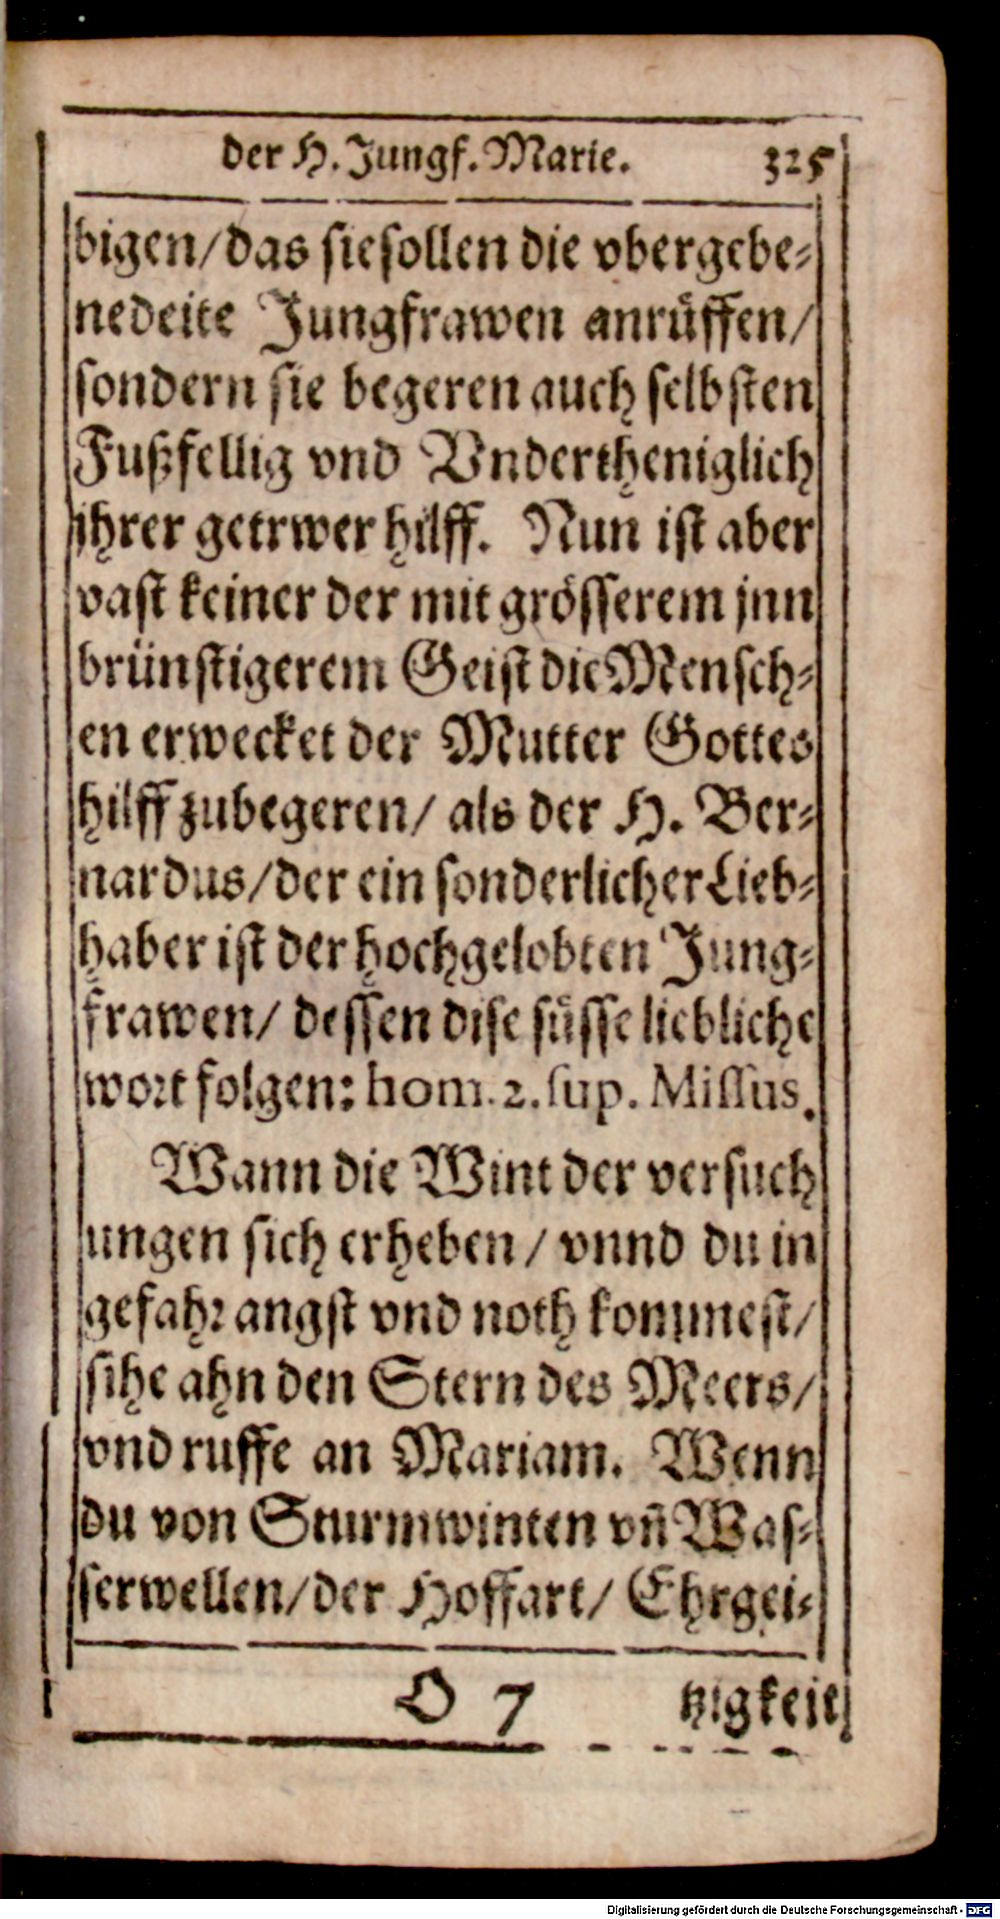 der H. Jungf. Marie. 325
bigen/das sie sollen die vbergebe-
nedeite Jungfrawen anrüffen/
sondern sie begeren auch selbsten
Fußfellig vnd Vndertheniglich
ihrer getrwer hilff. Nun ist aber
vast keiner der mit grösserem jnn
brünstigerem Geist die Mensch-
en erwecket der Mutter Gottes
hilff zubegeren/ als der H. Ber-
nardus/der ein sonderlicher Lieb-
haber ist der hochgelobten Jung-
frawen/ dessen dise süsse liebliche
wort folgen: hom. 2. sup. Missus.
Wann die Wint der versuch
ungen sich erheben / vnnd du in
gefahr angst vnd noth kommest/
sihe ahn den Stern des Meers/
vnd ruffe an Mariam. Wenn
du von Sturmwinten vñ Was-
serwellen/der Hoffart/ Ehrgei-
O 7 tzigkeit
Digitalisierung gefördert durch die Deutsche Forschungsgemeinschaft - DFG